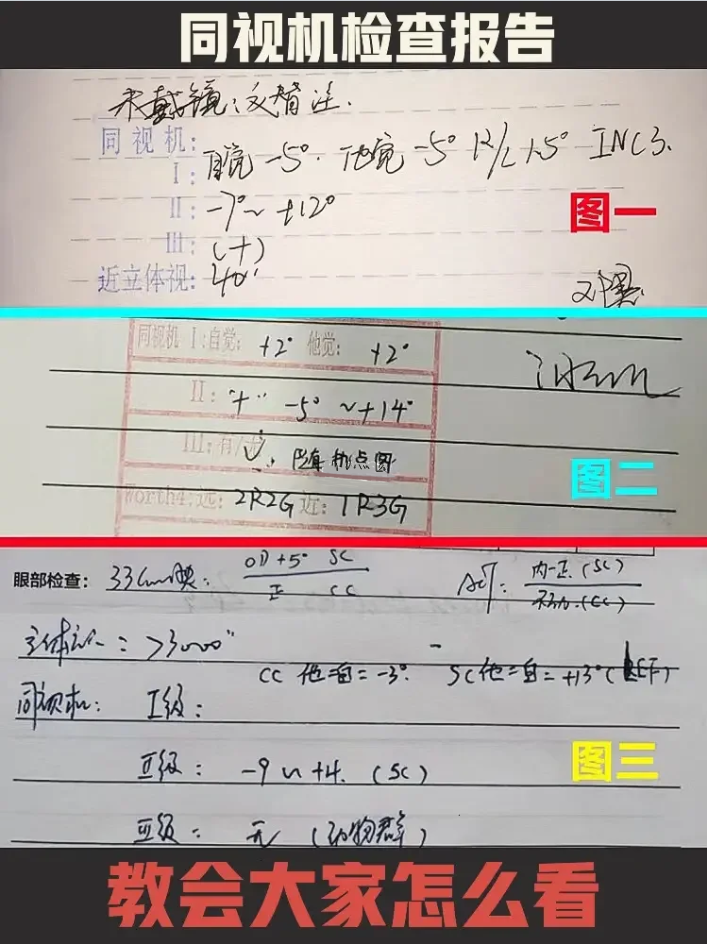 同视机检查报告
未戴镜:交替注.
同视机: 自觉 -5°. 他觉 -5° R/L 1.5° INC3.
I:
II: -7°~+12°
III: (+)
近立体视: 40"
图一
同视机 I:自觉: +2° 他觉: +2°
II: "+" -5° ~+14°
III:有/无 随机点图
图二
Worth4:远: 2R2G 近: 1R3G
眼部检查: 33cm映: OD+5° SC
正 CC
ACT: 内→正.(SC)
不动.(CC)
立体视: >3000"
CC 他=自=-3°. SC他=自=+13°
同视机: I级:
II级: -9~+4. (SC)
图三
III级: 无 (动物群)
教会大家怎么看